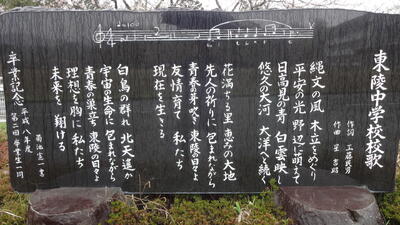 東陵中学校校歌
作詞 工藤氏男
作曲 星 吉昭
縄文の風 木立をめぐり
平安の光 野辺に萌ます
日高見の青 白雲映し
悠久の大河 大洋へと続く
花満つる里 恵みの大地
先人の祈りに 包まれながら
青春の芽吹き 東陵の日々よ
友情育て 私たち
現在を生きる
白鳥の群れ 北天遥か
宇宙の生命に 包まれながら
青春の巣立ち 東陵の日々よ
理想を胸に 私たち
未来を 翔ける
菊池憲一書
卒業記念 平成八年度 第二回 卒業生一同